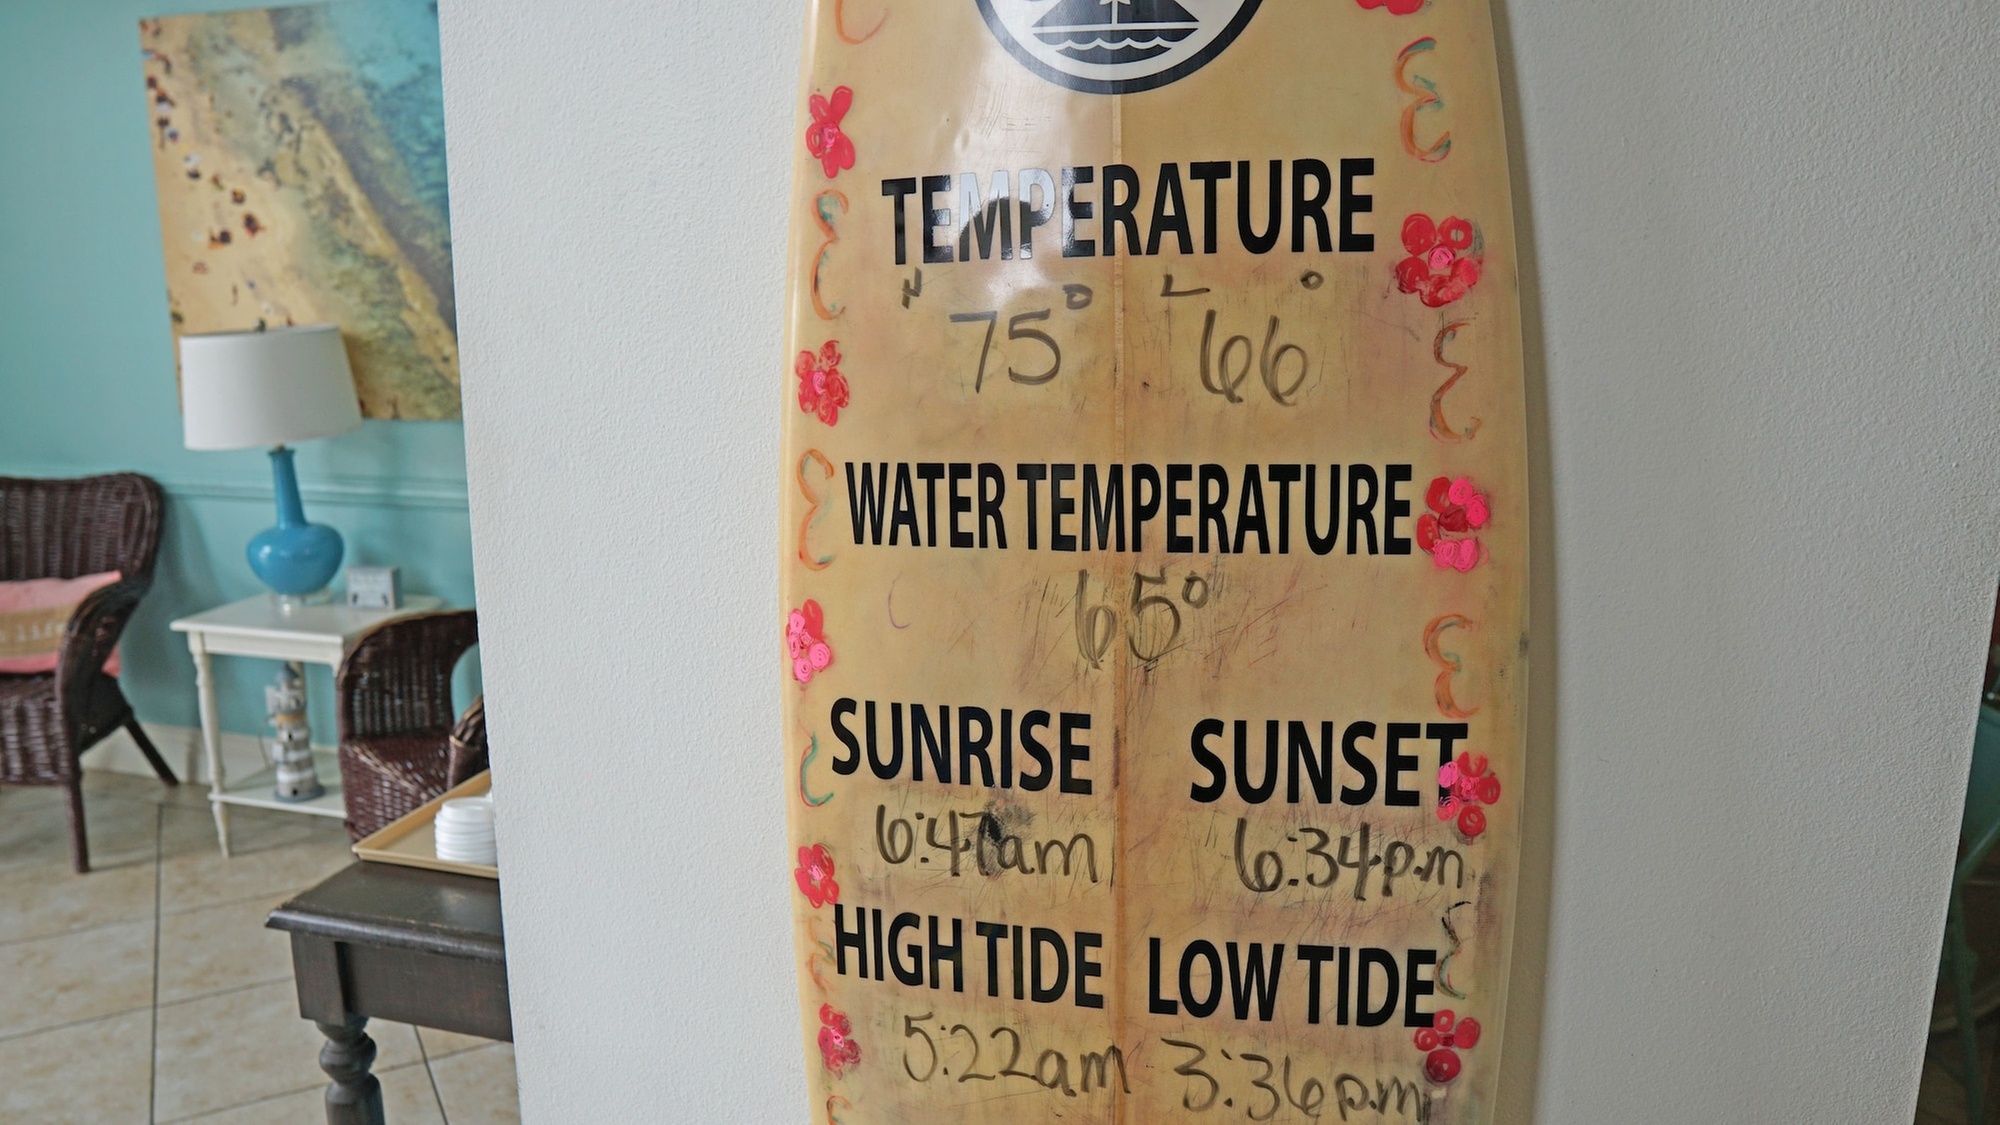 TEMPERATURE
H 75° L 66°
WATER TEMPERATURE
65°
SUNRISE SUNSET
6:47am 6:34p.m
HIGH TIDE LOW TIDE
5:22am 3:36p.m
life